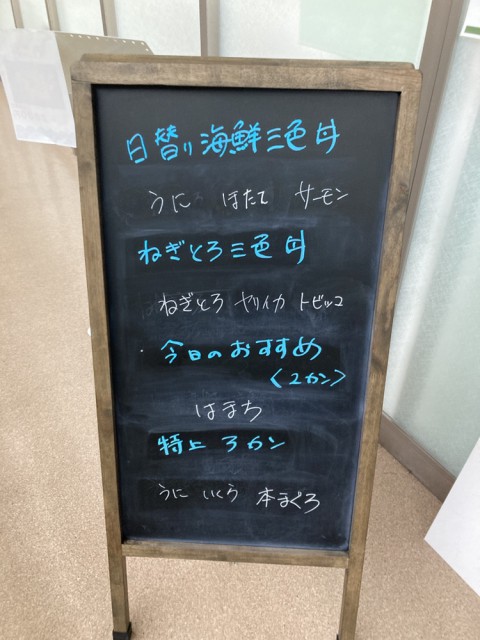 日替り海鮮三色丼
うに ほたて サーモン
ねぎとろ三色丼
ねぎとろ ヤリイカ トビッコ
・今日のおすすめ
〈2カン〉
はまち
特上 3カン
うに いくら 本まぐろ